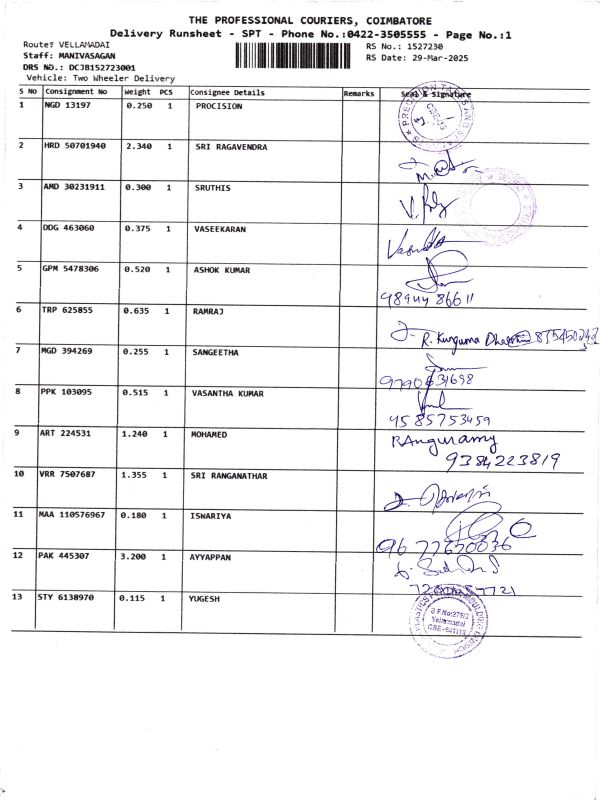 THE PROFESSIONAL COURIERS, COIMBATORE
Delivery Runsheet - SPT - Phone No.:0422-3505555 - Page No.:1
Route: VELLAMADAI RS No.: 1527230
Staff: MANIVASAGAN RS Date: 29-Mar-2025
DRS NO.: DCJB152723001
Vehicle: Two Wheeler Delivery
S No Consignment No Weight PCS Consignee Details Remarks Seal & Signature
1 NGD 13197 0.250 1 PROCISION
2 HRD 50701940 2.340 1 SRI RAGAVENDRA
3 AMD 30231911 0.300 1 SRUTHIS
4 DDG 463060 0.375 1 VASEEKARAN
5 GPM 5478306 0.520 1 ASHOK KUMAR
98944 86611
6 TRP 625855 0.635 1 RAMRAJ
7 MGD 394269 0.255 1 SANGEETHA
8 PPK 103095 0.515 1 VASANTHA KUMAR
9585753459
9 ART 224531 1.240 1 MOHAMED
RAnguramy
9384223819
10 VRR 7507687 1.355 1 SRI RANGANATHAR
11 MAA 110576967 0.180 1 ISWARIYA
12 PAK 445307 3.200 1 AYYAPPAN
13 STY 6138970 0.115 1 YUGESH
S.F.No:276/2
Vellamadai